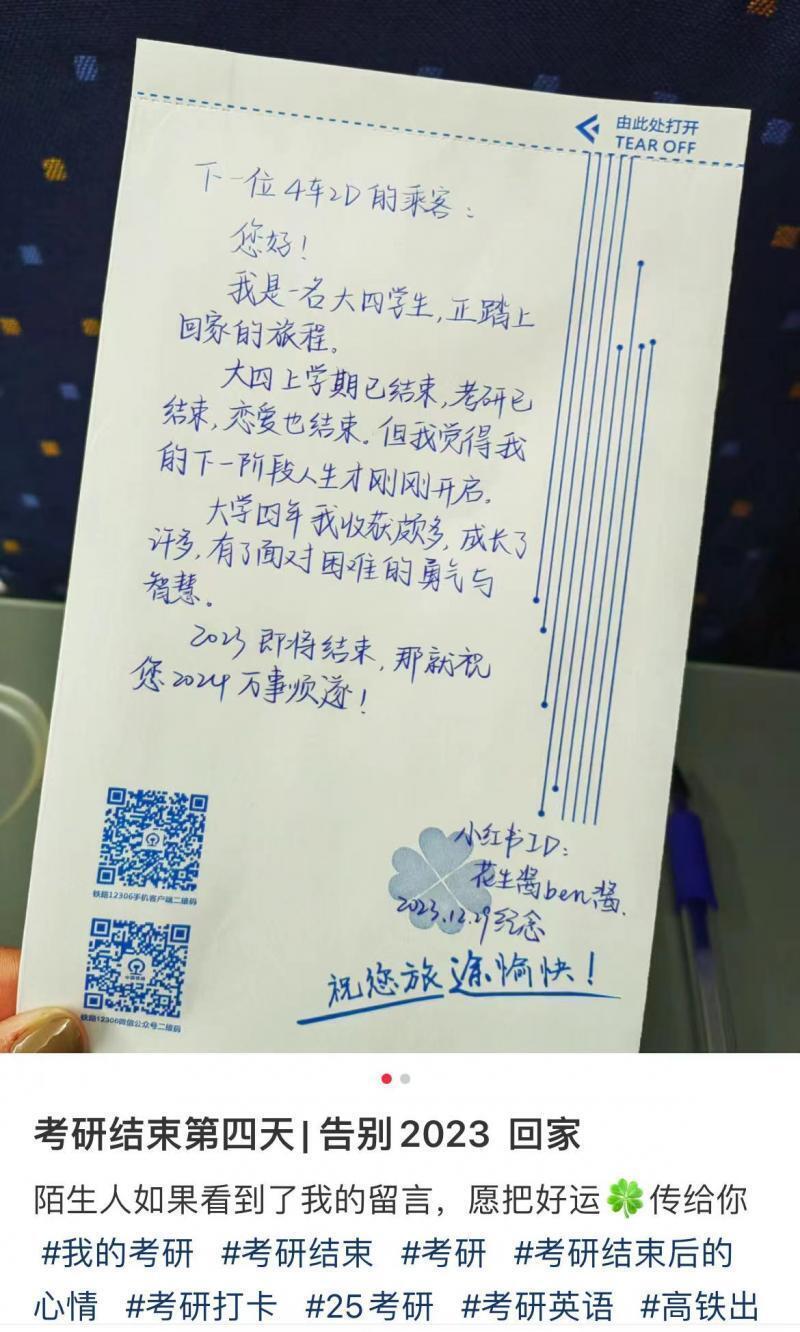 由此处打开
TEAR OFF
下一位4车2D的乘客：
您好！
我是一名大四学生，正踏上
回家的旅程。
大四上学期已结束，考研已
结束，恋爱也结束。但我觉得我
的下一阶段人生才刚刚开启。
大学四年我收获颇多，成长了
许多，有了面对困难的勇气与
智慧。
2023即将结束，那就祝
您2024万事顺遂！
铁路12306手机客户端二维码
铁路12306微信公众号二维码
小红书ID：
花生酱ben酱.
2023.12.29纪念
祝您旅途愉快！
考研结束第四天|告别2023 回家
陌生人如果看到了我的留言，愿把好运🍀传给你
#我的考研 #考研结束 #考研 #考研结束后的
心情 #考研打卡 #25考研 #考研英语 #高铁出